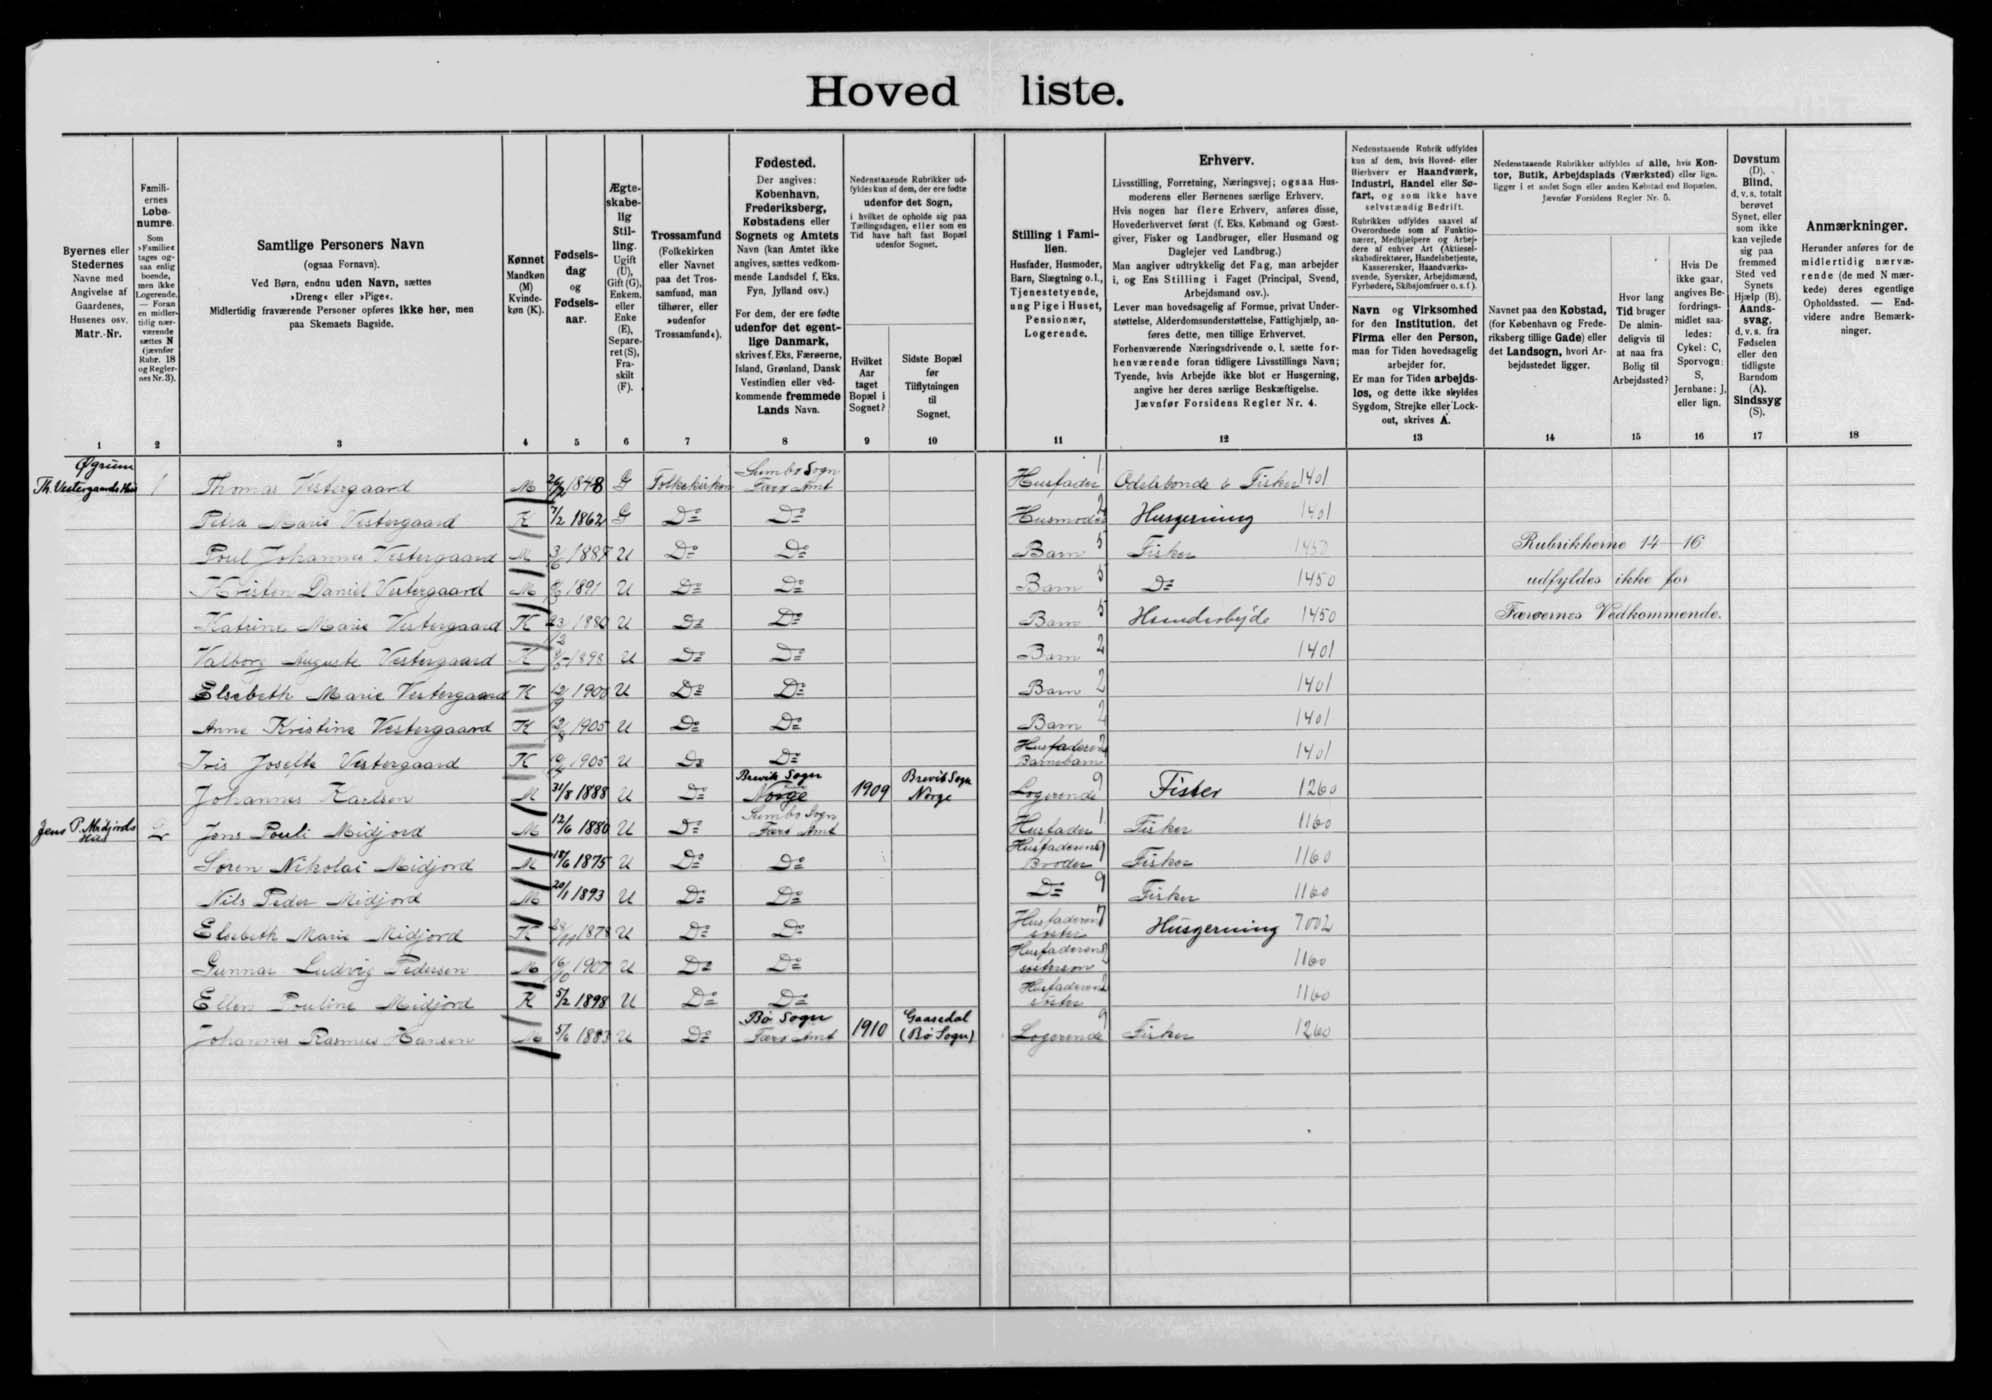 Hoved liste.
Byernes eller
Stedernes
Navne med
Angivelse af
Gaardenes,
Husenes osv.
Matr.-Nr.
1
Famili-
ernes
Løbe-
numre.
Som
»Familie«
tages og-
saa enlig
boende,
men ikke
Logerende.
— Foran
en midler-
tidig nær-
værende
sættes N
(jævnfør
Rubr. 18
og Regler-
nes Nr. 3).
2
Samtlige Personers Navn
(ogsaa Fornavn).
Ved Børn, endnu uden Navn, sættes
»Dreng« eller »Pige«.
Midlertidig fraværende Personer opføres ikke her, men
paa Skemaets Bagside.
3
Kønnet
Mandkøn
(M)
Kvinde-
køn (K).
4
Fødsels-
dag
og
Fødsels-
aar.
5
Ægte-
skabe-
lig
Stil-
ling.
Ugift
(U),
Gift (G),
Enkem.
eller
Enke
(E),
Separe-
ret (S),
Fra-
skilt
(F).
6
Trossamfund
(Folkekirken
eller Navnet
paa det Tros-
samfund, man
tilhører, eller
»udenfor
Trossamfund«).
7
Fødested.
Der angives:
København,
Frederiksberg,
Købstadens eller
Sognets og Amtets
Navn (kan Amtet ikke
angives, sættes vedkom-
mende Landsdel f. Eks.
Fyn, Jylland osv.)
For dem, der ere fødte
udenfor det egent-
lige Danmark,
skrives f. Eks. Færøerne,
Island, Grønland, Dansk
Vestindien eller ved-
kommende fremmede
Lands Navn.
8
Nedenstaaende Rubrikker ud-
fyldes kun af dem, der ere fødte
udenfor det Sogn,
i hvilket de opholde sig paa
Tællingsdagen, eller som en
Tid have haft fast Bopæl
udenfor Sognet.
Hvilket
Aar
taget
Bopæl i
Sognet?
9
Sidste Bopæl
før
Tilflytningen
til
Sognet.
10
Stilling i Fami-
lien.
Husfader, Husmoder,
Barn, Slægtning o. l.,
Tjenestetyende,
ung Pige i Huset,
Pensionær,
Logerende.
11
Erhverv.
Livsstilling, Forretning, Næringsvej; ogsaa Hus-
moderens eller Børnenes særlige Erhverv.
Hvis nogen har flere Erhverv, anføres disse,
Hovederhvervet først (f. Eks. Købmand og Gæst-
giver, Fisker og Landbruger, eller Husmand og
Daglejer ved Landbrug.)
Man angiver udtrykkelig det Fag, man arbejder
i, og Ens Stilling i Faget (Principal, Svend,
Arbejdsmand osv.).
Lever man hovedsagelig af Formue, privat Under-
støttelse, Alderdomsunderstøttelse, Fattighjælp, an-
føres dette, men tillige Erhvervet.
Forhenværende Næringsdrivende o. l. sætte for-
henværende foran tidligere Livsstillings Navn;
Tyende, hvis Arbejde ikke blot er Husgerning,
angive her deres særlige Beskæftigelse.
Jævnfør Forsidens Regler Nr. 4.
12
Nedenstaaende Rubrik udfyldes
kun af dem, hvis Hoved- eller
Bierhverv er Haandværk,
Industri, Handel eller Sø-
fart, og som ikke have
selvstændig Bedrift.
Rubrikken udfyldes saavel af
Overordnede som af Funktio-
nærer, Medhjælpere og Arbej-
dere af enhver Art (Aktiesel-
skabsdirektører, Handelsbetjente,
Kasserersker, Haandværks-
svende, Syersker, Arbejdsmænd,
Fyrbødere, Skibsjomfruer o. s. f.).
Navn og Virksomhed
for den Institution, det
Firma eller den Person,
man for Tiden hovedsagelig
arbejder for.
Er man for Tiden arbejds-
løs, og dette ikke skyldes
Sygdom, Strejke eller Lock-
out, skrives A.
13
Nedenstaaende Rubrikker udfyldes af alle, hvis Kon-
tor, Butik, Arbejdsplads (Værksted) eller lign.
ligger i et andet Sogn eller anden Købstad end Bopælen.
Jævnfør Forsidens Regler Nr. 5.
Navnet paa den Købstad,
(for København og Frede-
riksberg tillige Gade) eller
det Landsogn, hvori Ar-
bejdsstedet ligger.
14
Hvor lang
Tid bruger
De almin-
deligvis til
at naa fra
Bolig til
Arbejdssted?
15
Hvis De
ikke gaar,
angives Be-
fordrings-
midlet saa-
ledes:
Cykel: C,
Sporvogn:
S,
Jernbane: J,
eller lign.
16
Døvstum
(D).
Blind,
d. v. s. totalt
berøvet
Synet, eller
som ikke
kan vejlede
sig paa
fremmed
Sted ved
Synets
Hjælp (B).
Aands-
svag,
d. v. s. fra
Fødselen
eller den
tidligste
Barndom
(A).
Sindssyg
(S).
17
Anmærkninger.
Herunder anføres for de
midlertidig nærvæ-
rende (de med N mær-
kede) deres egentlige
Opholdssted. — End-
videre andre Bemærk-
ninger.
18
Øgrum
Th. Vestergaards Hus 1 Thomas Vestergaard M 1848 G Folkekirken Sumbo Sogn Færø Amt Husfader 1 Odelsbonde & Fisker 1401
Petra Marie Vestergaard K 7/2 1862 G Do Do Husmoder 2 Husgerning 1401
Poul Johannes Vestergaard M U Do Do Barn 5 Fisker 1450 Rubrikkerne 14-16
Kristen Daniel Vestergaard M 1891 U Do Do Barn 5 Do 1450 udfyldes ikke for
Katrine Marie Vestergaard K 1880 U Do Do Barn 5 1450 Færøernes Vedkommende.
Valborg Auguste Vestergaard K 1898 U Do Do Barn 2 1401
Elsebeth Marie Vestergaard K 1900 U Do Do Barn 2 1401
Anne Kristine Vestergaard K 1905 U Do Do Barn 2 1401
Iris Josefte Vestergaard K 1905 U Do Do Husfaderens Barnebarn 2 1401
Johannes Karlsen M 31/8 1888 U Do Brevik Sogn Norge 1909 Brevik Sogn Norge Logerende 9 Fisker 1260
Jens P. Midjords Hus 2 Jens Pouli Midjord M 12/6 1880 U Do Sumbo Sogn Færø Amt Husfader 1 Fisker 1160
Søren Nikolai Midjord M 1875 U Do Do Husfaderens Broder 9 Fisker 1160
Nils Peder Midjord M 20/1 1893 U Do Do Do 9 Fisker 1160
Elsebeth Marie Midjord K 1878 U Do Do Husfaderens søster 7 Husgerning 7002
Gunnar Ludvig Pedersen M 1907 U Do Do Husfaderens søsterson 1160
Ellen Pouline Midjord K 5/2 1898 U Do Do Husfaderens søster 1160
Johannes Rasmus Hansen M 5/6 1883 U Do Bø Sogn Færø Amt 1910 Gaasedal (Bø Sogn) Logerende 9 Fisker 1260